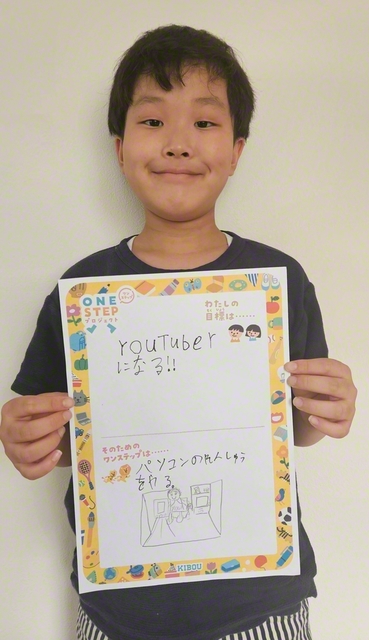 ONE
STEP
プロジェクト
わたしの
目標は……
YOUTUBER
になる!!
そのための
ワンステップは……
パソコンのれんしゅう
をやる
KIBOU